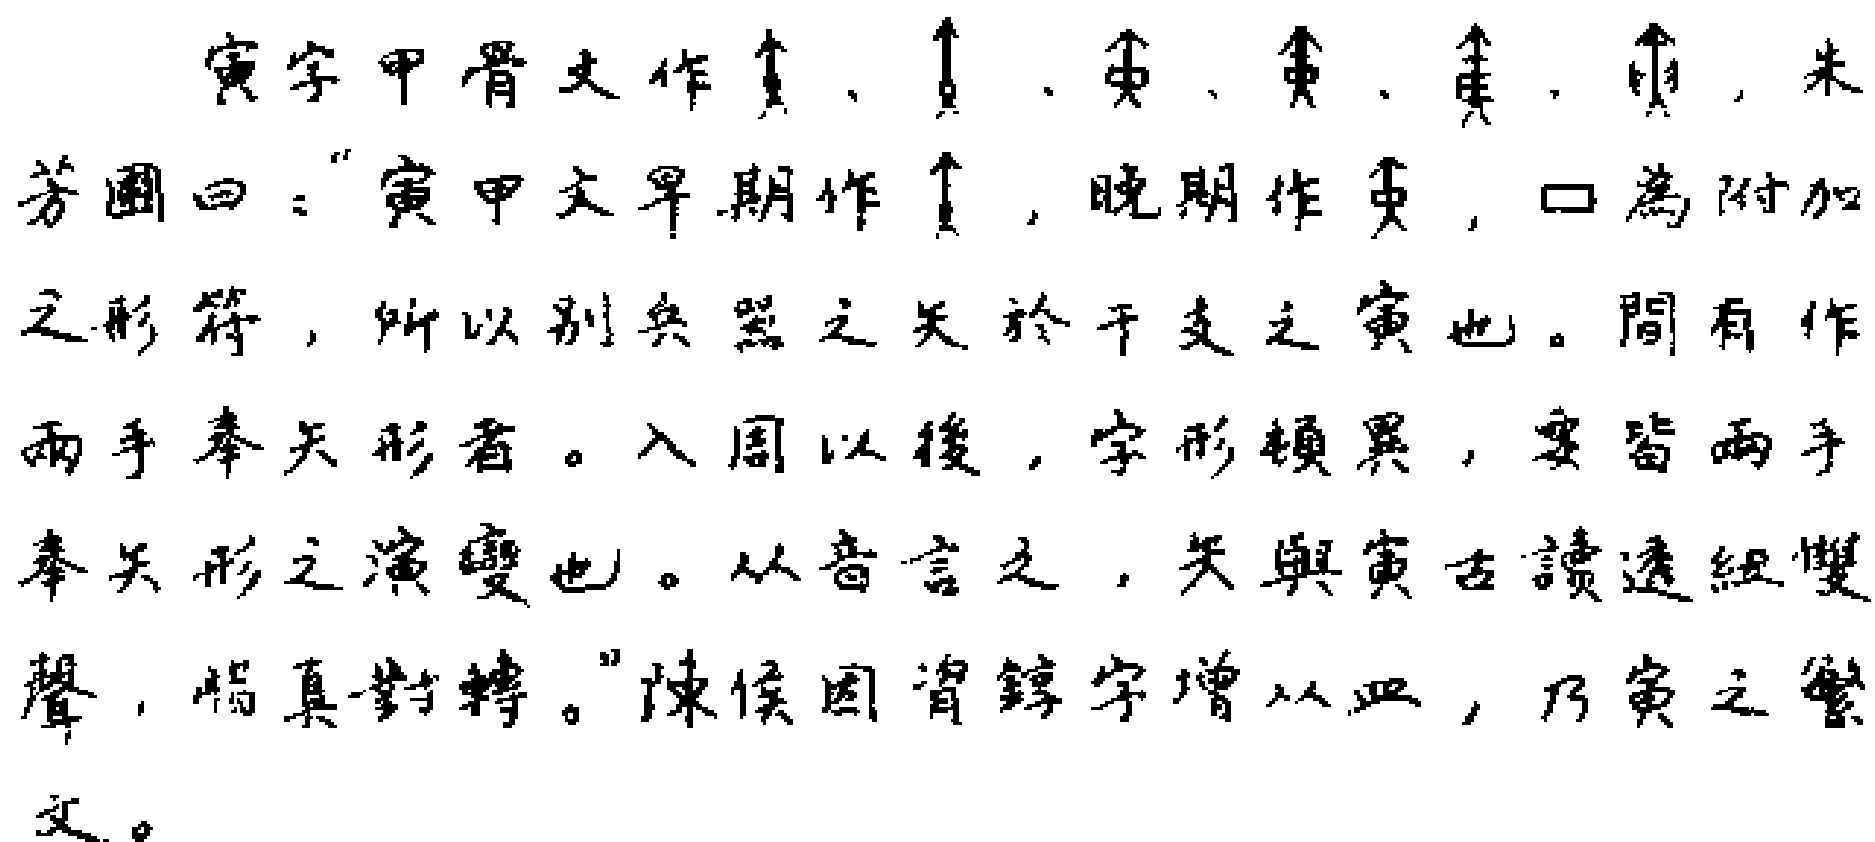 寅字甲骨文作、、、、、,朱
芳圃曰:“寅甲文早期作,晚期作,口為附加
之形符,所以別兵器之矢於干支之寅也。間有作
兩手奉矢形者。入周以後,字形頓異,要皆兩手
奉矢形之演變也。从音言之,矢與寅古讀透紐雙
聲,脂真對轉。”陳侯因𬱖錞字增从皿,乃寅之繁
文。